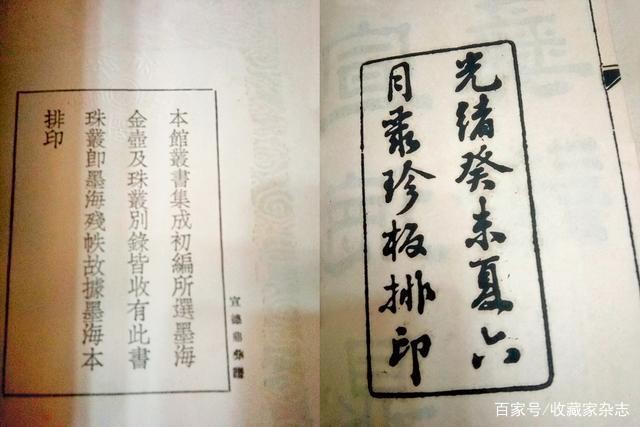 宣德鼎彝譜
本館叢書集成初編所選墨海
金壺及珠叢別錄皆收有此書
珠叢卽墨海殘帙故據墨海本
排印
光緒癸未夏六
月聚珍板排印
百家号/收藏家杂志